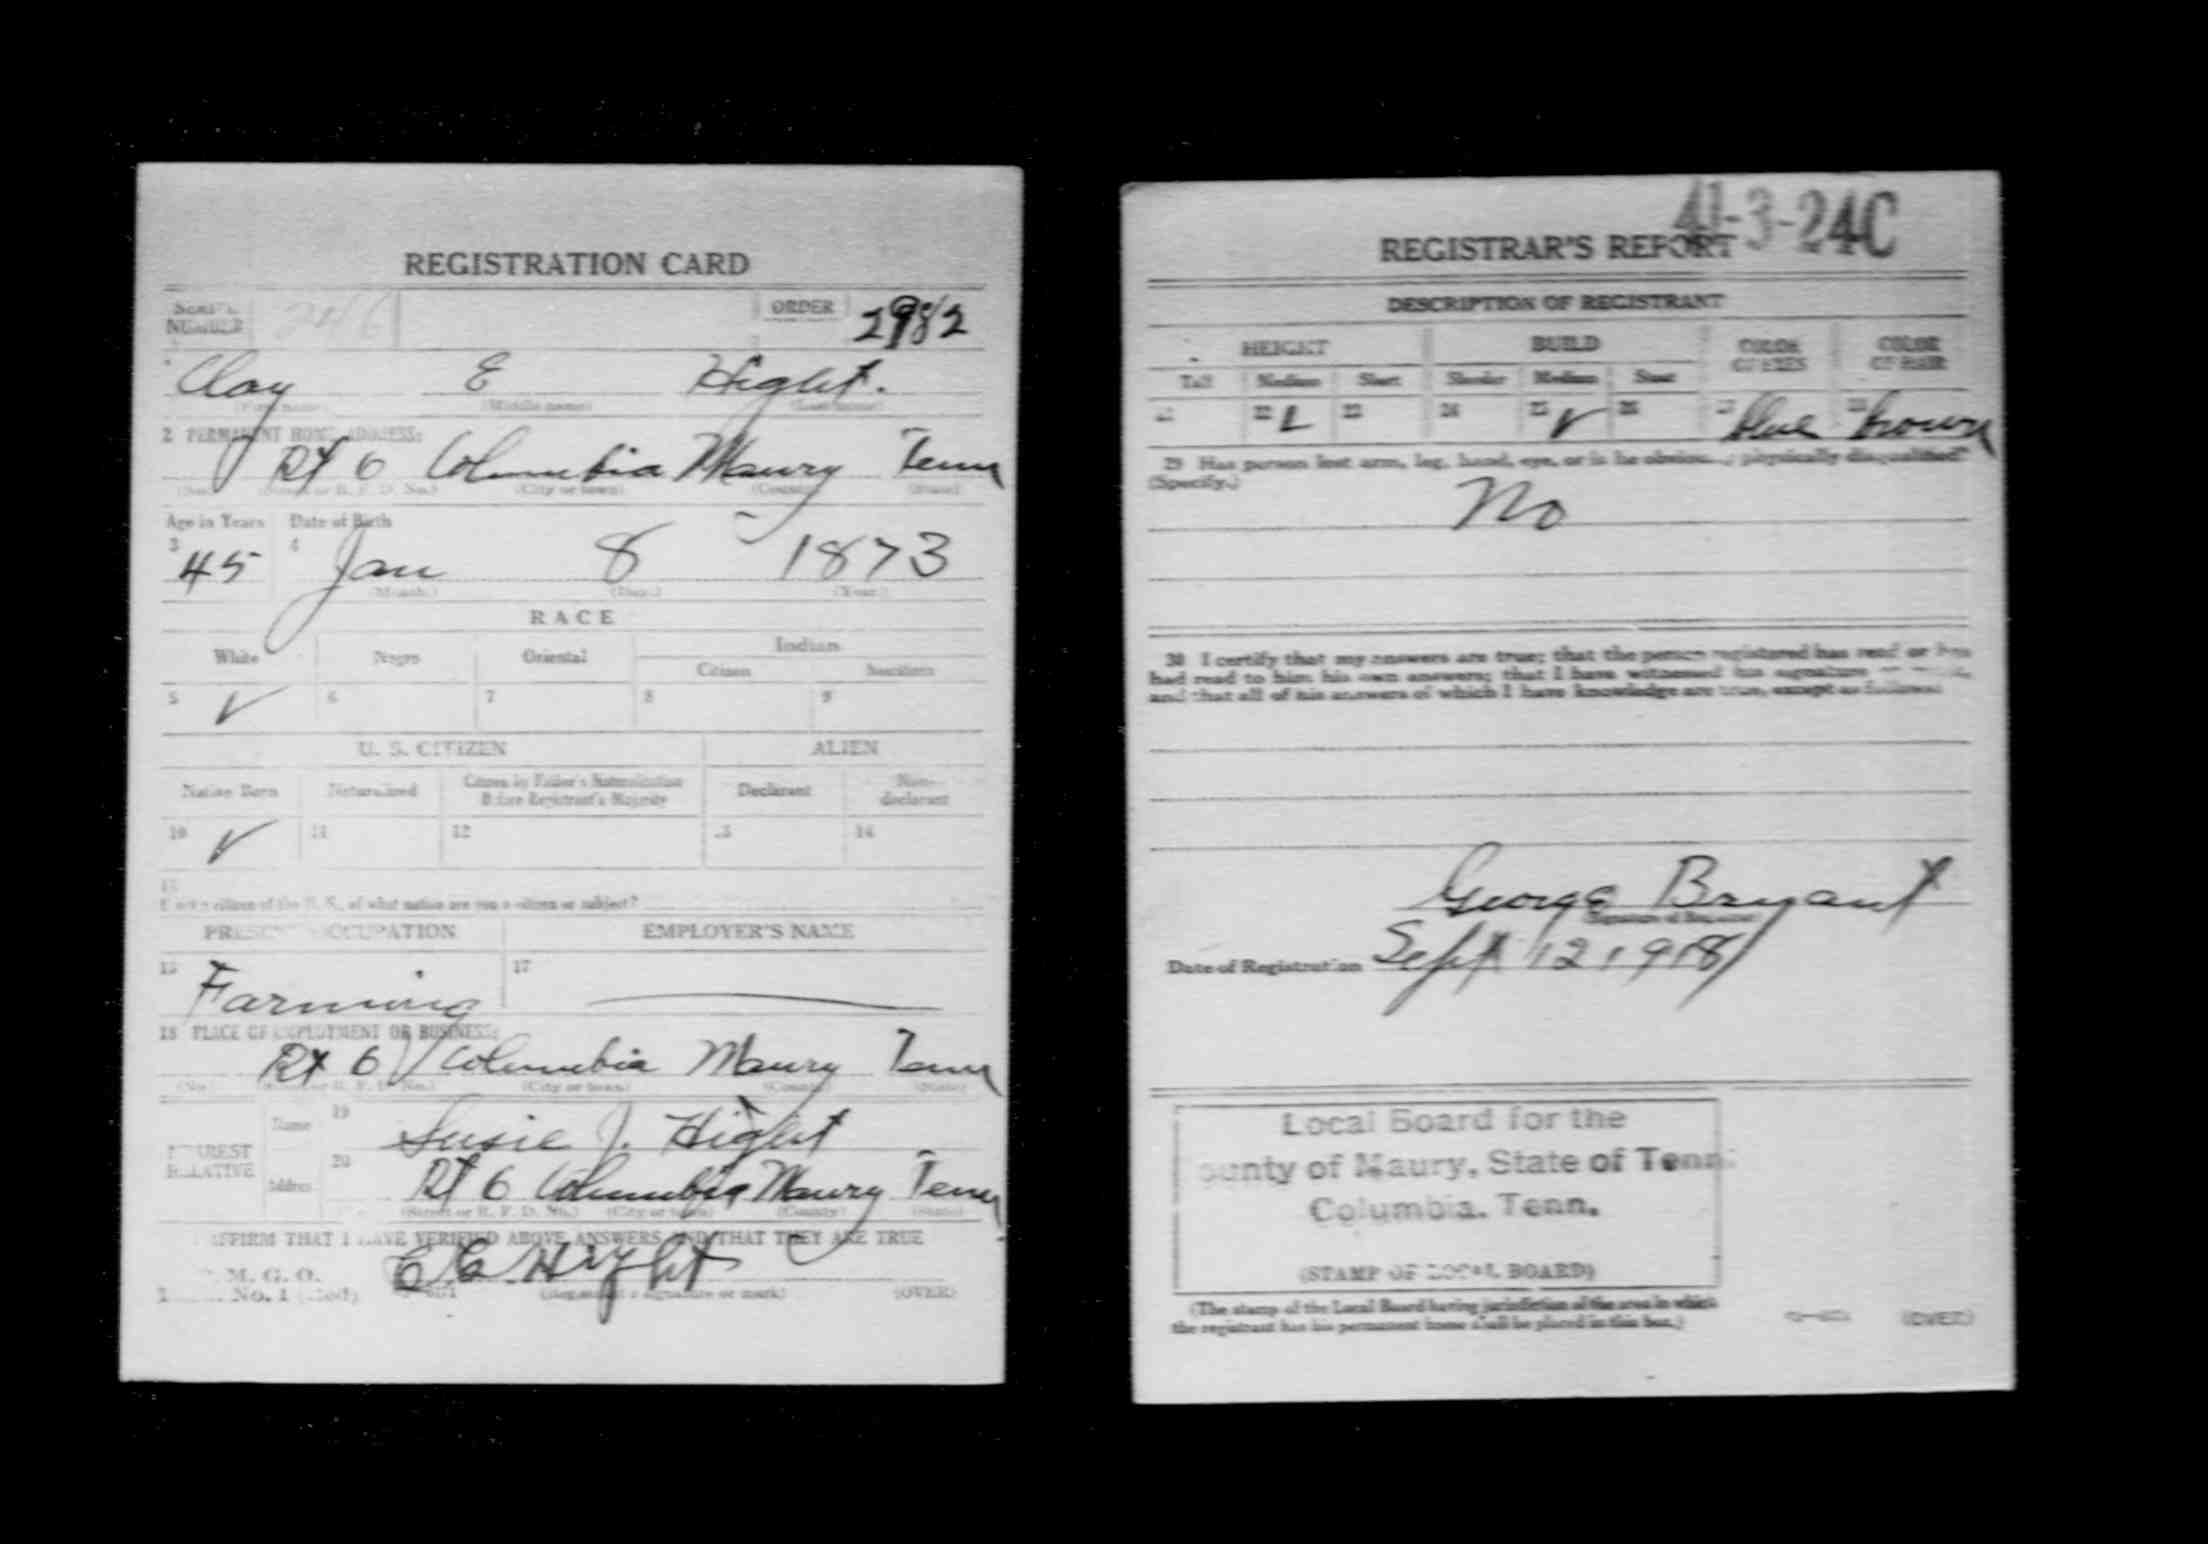 REGISTRATION CARD
SERIAL NUMBER 246 ORDER 2982
1 Clay E Hight.
(First name) (Middle name) (Last name)
2 PERMANENT HOME ADDRESS:
Rt 6 Columbia Maury Tenn
(No.) (Street or R. F. D. No.) (City or town) (County) (State)
Age in Years Date of Birth
3 45 4 Jan 8 1873
(Month.) (Day.) (Year.)
RACE
White Negro Oriental Indian
Citizen
5 ✓ 6 7 8 9
U. S. CITIZEN ALIEN
Native Born Naturalized Citizen by Father's Naturalization Before Registrant's Majority Declarant Non-declarant
10 ✓ 11 12 13 14
15
If not a citizen of the U. S., of what nation are you a citizen or subject?
PRESENT OCCUPATION EMPLOYER'S NAME
16 Farming 17
18 PLACE OF EMPLOYMENT OR BUSINESS:
Rt 6 Columbia Maury Tenn
(No.) (Street or R. F. D. No.) (City or town) (County) (State)
NEAREST RELATIVE Name 19 Susie J. Hight
Address 20 Rt 6 Columbia Maury Tenn
(Street or R. F. D. No.) (City or town) (County) (State)
I AFFIRM THAT I HAVE VERIFIED ABOVE ANSWERS AND THAT THEY ARE TRUE
P. M. G. O.
Form No. 1 (Red) C E Hight
(Registrant's signature or mark) (OVER)
41-3-24C
REGISTRAR'S REPORT
DESCRIPTION OF REGISTRANT
HEIGHT BUILD COLOR OF EYES COLOR OF HAIR
Tall Medium Short Slender Medium Stout
21 22 ✓ 23 24 25 ✓ 26 27 blue 28 brown
29 Has person lost arm, leg, hand, eye, or is he obviously physically disqualified?
(Specify.)
No
30 I certify that my answers are true; that the person registered has read or has
had read to him his own answers; that I have witnessed his signature or mark,
and that all of his answers of which I have knowledge are true, except as follows:
George Bryant
(Signature of Registrar)
Date of Registration Sept 12 1918
Local Board for the
County of Maury, State of Tenn.
Columbia. Tenn.
(STAMP OF LOCAL BOARD)
(The stamp of the Local Board having jurisdiction of the area in which
the registrant has his permanent home shall be placed in this box.)
(OVER)